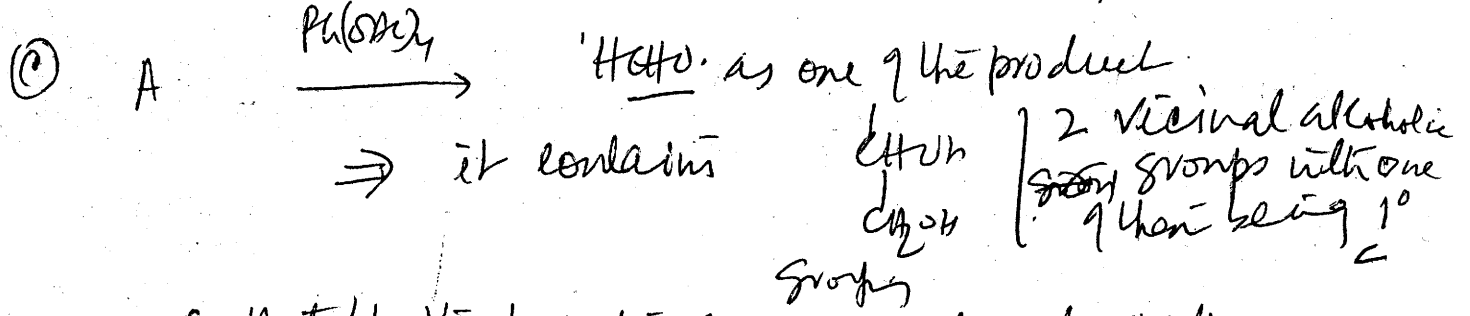 (c) A Pb(OAc)4 → 'HCHO' as one of the product
⇒ it contains CHOH 2 vicinal alcoholic
CH2OH groups with one of them being 1°
groups